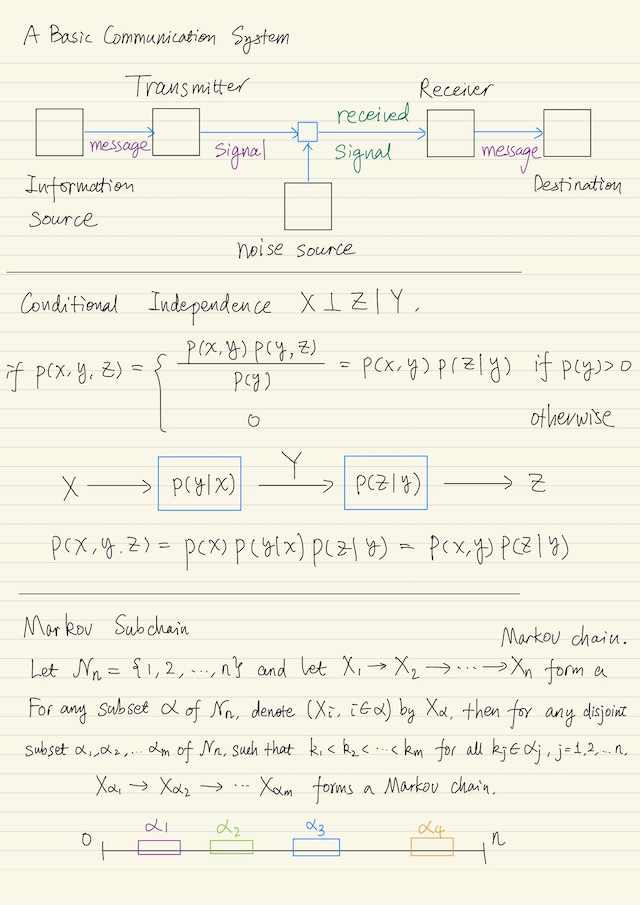 A Basic Communication System
Transmitter
Receiver
received
message
signal
signal
message
Information
source
Destination
noise source
Conditional Independence X ⊥ Z | Y.
if p(x, y, z) = { p(x, y) p(y, z) / p(y) = p(x, y) p(z|y) if p(y) > 0
0 otherwise
X → p(y|x) Y → p(z|y) → Z
p(x, y, z) = p(x) p(y|x) p(z|y) = p(x, y) p(z|y)
Markov Subchain
Markov chain.
Let Nn = {1, 2, ..., n} and let X1 → X2 → ... → Xn form a
For any subset α of Nn, denote (Xi, i∈α) by Xα, then for any disjoint
subset α1, α2, ... αm of Nn, such that k1 < k2 < ... < km for all kj ∈ αj, j=1,2,...n.
Xα1 → Xα2 → ... Xαm forms a Markov chain.
0 α1 α2 α3 α4 n